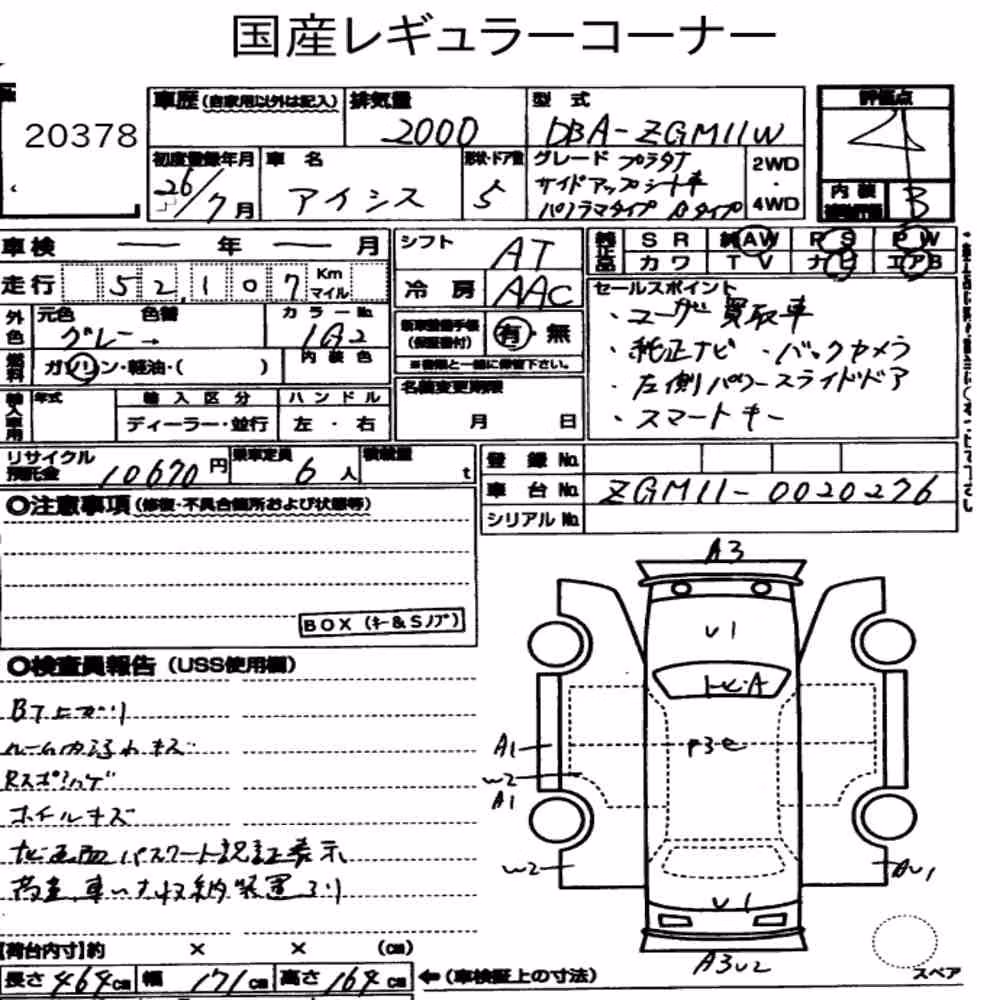 国産レギュラーコーナー
20378
車歴 (自家用以外は記入)
排気量 2000
型式 DBA-ZGM11W
評価点 4
初度登録年月 26/7月
車名 アイシス
形状・ドア数 5
グレード プラタナ
サイドアップシート車
パノラマタイプ Aタイプ
2WD・4WD
内装 B
車検 ー 年 ー 月
シフト AT
純正品 SR 純AW PS PW
カワ TV ナビ エアB
走行 52,107 Km マイル
冷房 AAC
セールスポイント
・ユーザー買取車
・純正ナビ ・バックカメラ
・左側パワースライドドア
・スマートキー
外色 元色 グレー → 色替
カラーNo. 1G2
新車整備手帳 (保証書付) 有・無
※書類と一緒に保管下さい。
燃料 ガソリン・軽油・( )
内装色
名義変更期限 月 日
輸入車用 年式 輸入区分 ハンドル
ディーラー・並行 左・右
リサイクル預託金 10670円
乗車定員 6人
積載量 t
登録No.
車台No. ZGM11-0020276
シリアルNo.
○注意事項 (修復・不具合箇所および状態等)
BOX (キー&Sノブ)
○検査員報告 (USS使用欄)
BT上がり
ルーム内汚れキズ
Rスポハゲ
ホイルキズ
ナビ画面パスワード認証表示
車いす収納装置アリ
A3
U1
トビA
P3e
A1
W2
A1
W2
AU1
U1
A3U2
スペア
【荷台内寸】約 × × (cm)
長さ 464cm 幅 171cm 高さ 164cm ←(車検証上の寸法)